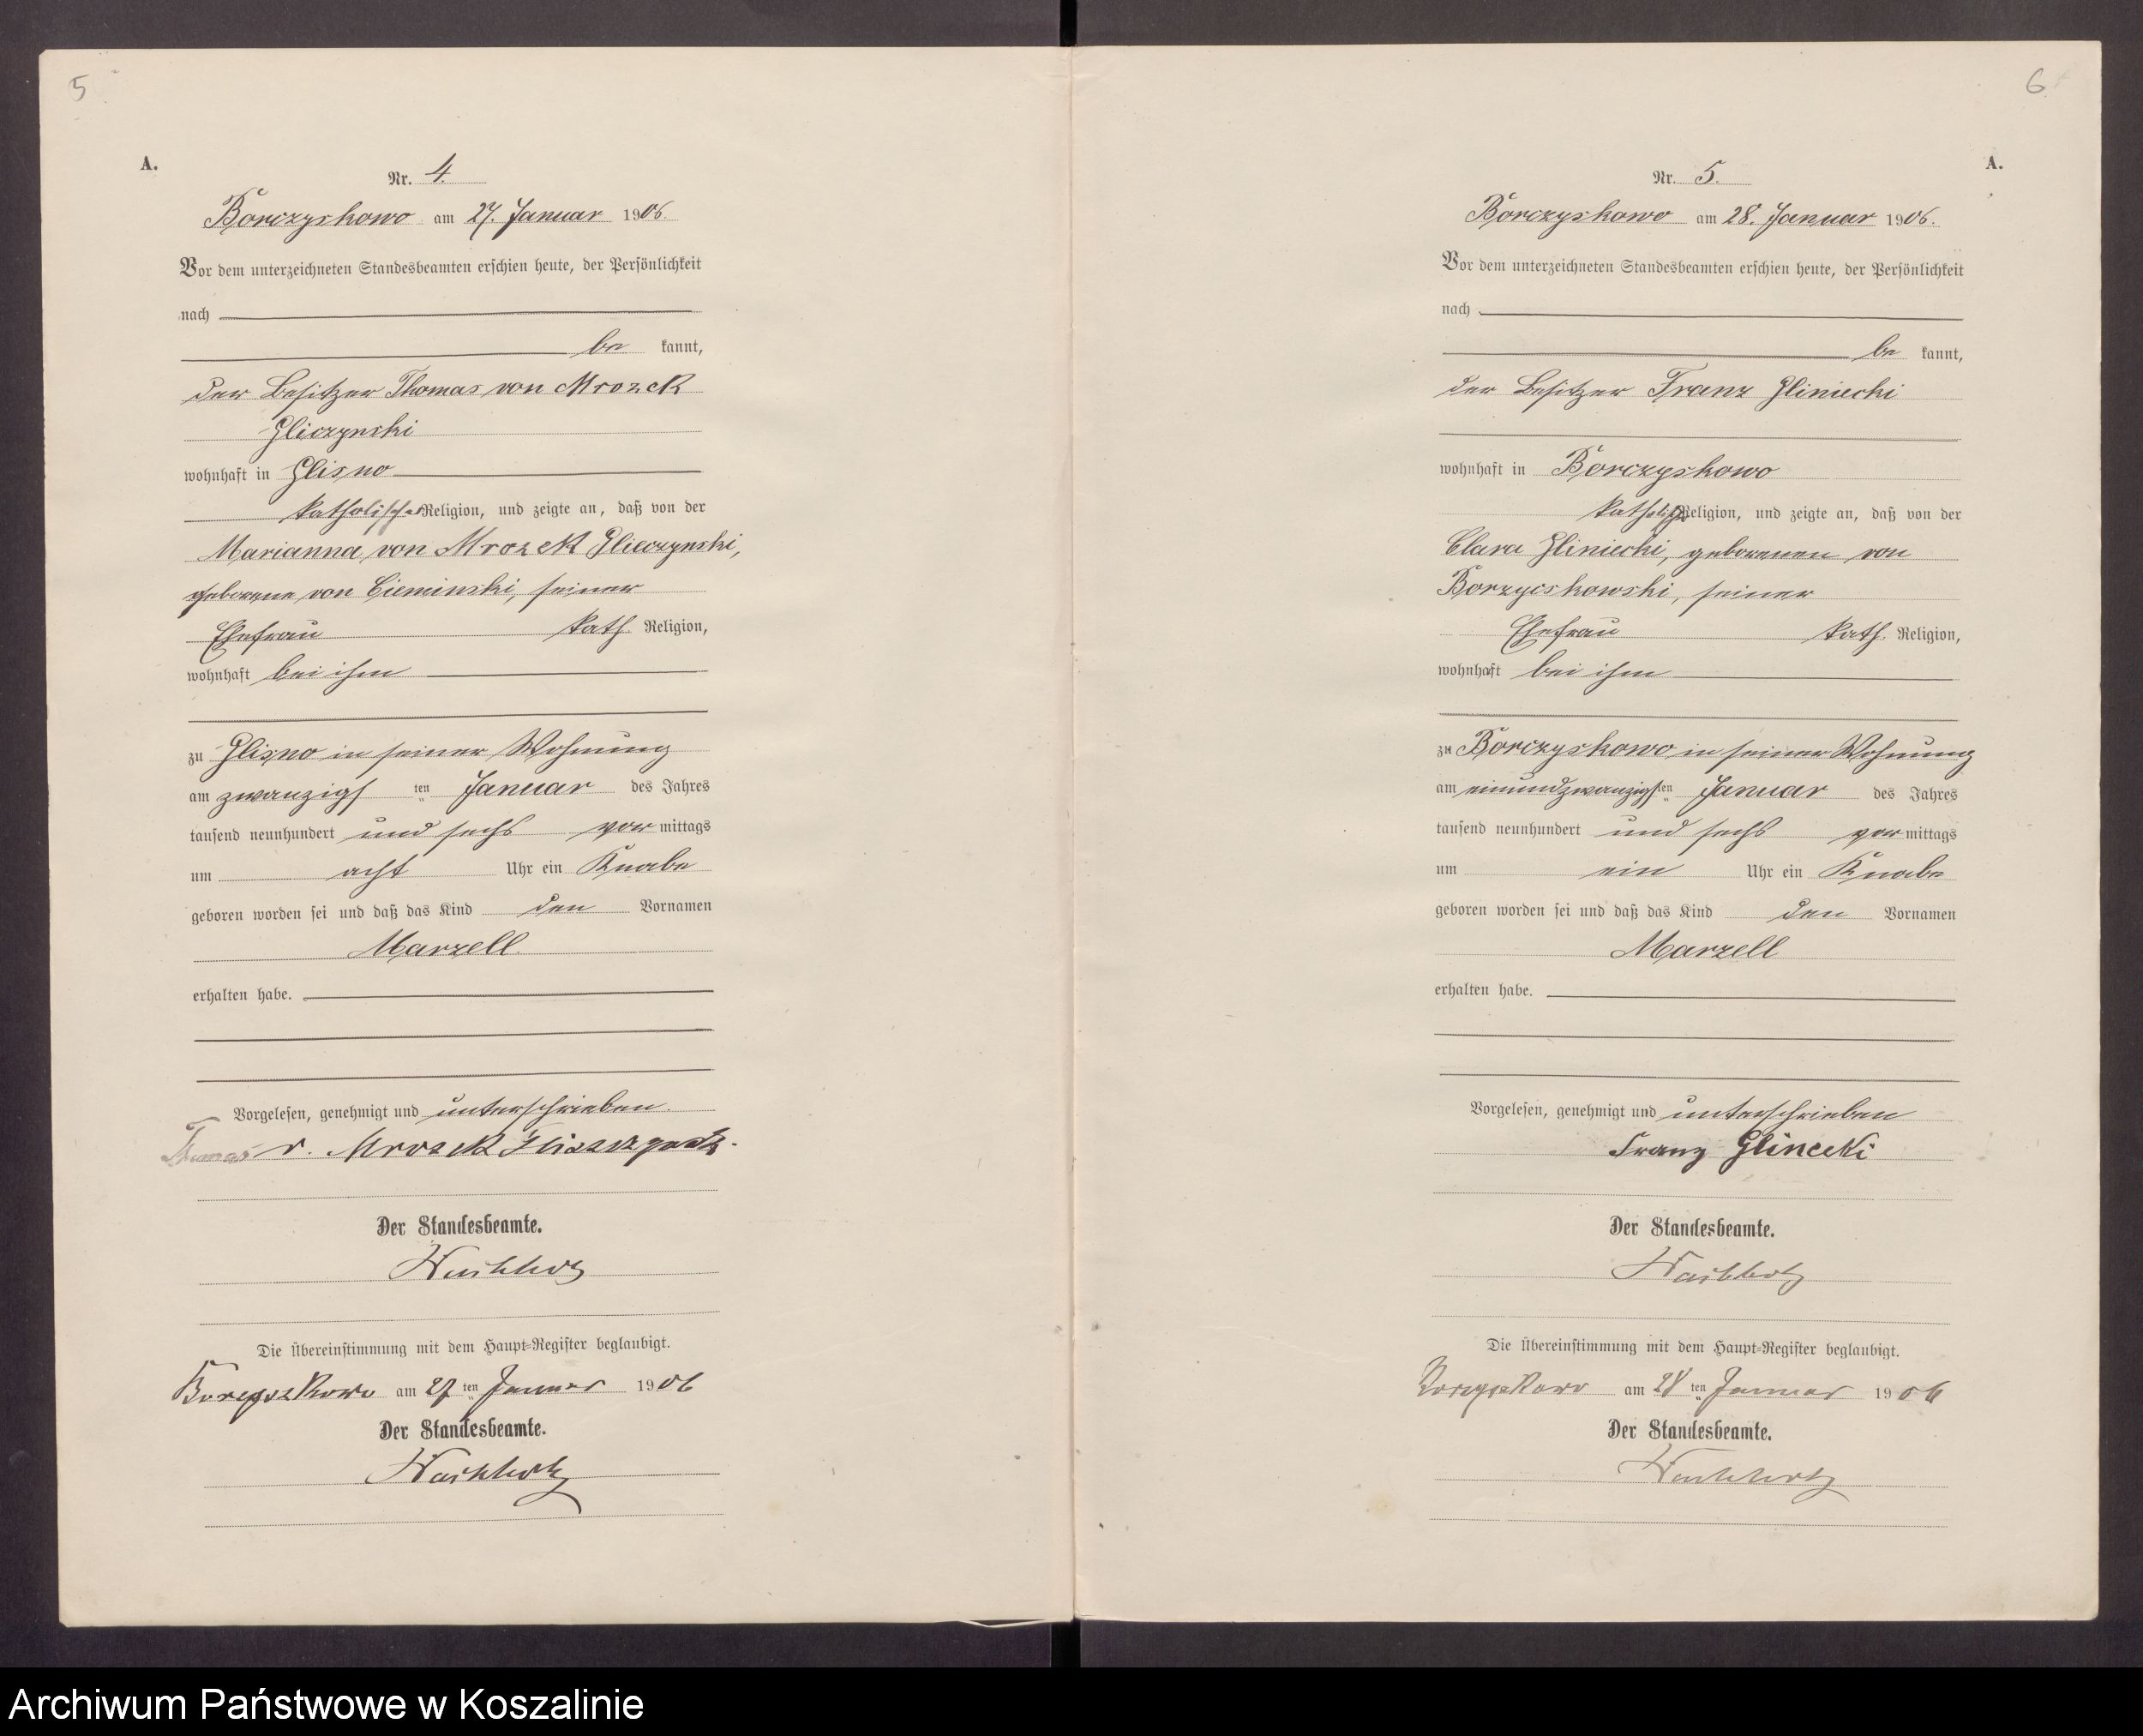 5
A.
Nr. 4.
Borczyskowo am 27. Januar 1906.
Vor dem unterzeichneten Standesbeamten erschien heute, der Persönlichkeit
nach
be kannt,
der Besitzer Thomas von Mrozek
Gliczynski
wohnhaft in Glisno
katholischer Religion, und zeigte an, daß von der
Marianna von Mrozek Gliczynski,
geborene von Cieminski, seiner
Ehefrau kath. Religion,
wohnhaft bei ihm
zu Glisno in seiner Wohnung
am zwanzigs ten Januar des Jahres
tausend neunhundert und sechs vor mittags
um acht Uhr ein Knabe
geboren worden sei und daß das Kind den Vornamen
Marzell
erhalten habe.
Vorgelesen, genehmigt und unterschrieben.
v. Mrozek
Der Standesbeamte.
Die Übereinstimmung mit dem Haupt-Register beglaubigt.
am 27 ten Januar 1906
Der Standesbeamte.
6
A.
Nr. 5.
Borczyskowo am 28. Januar 1906.
Vor dem unterzeichneten Standesbeamten erschien heute, der Persönlichkeit
nach
be kannt,
der Besitzer Franz Gliniecki
wohnhaft in Borczyskowo
katholischer Religion, und zeigte an, daß von der
Clara Gliniecki, geborenen von
Borzycskowski, seiner
Ehefrau kath. Religion,
wohnhaft bei ihm
zu Borczyskowo in seiner Wohnung
am einundzwanzigs ten Januar des Jahres
tausend neunhundert und sechs vor mittags
um ein Uhr ein Knabe
geboren worden sei und daß das Kind den Vornamen
Marzell
erhalten habe.
Vorgelesen, genehmigt und unterschrieben
Franz Glinecki
Der Standesbeamte.
Die Übereinstimmung mit dem Haupt-Register beglaubigt.
am 28 ten Januar 1906
Der Standesbeamte.
Archiwum Państwowe w Koszalinie